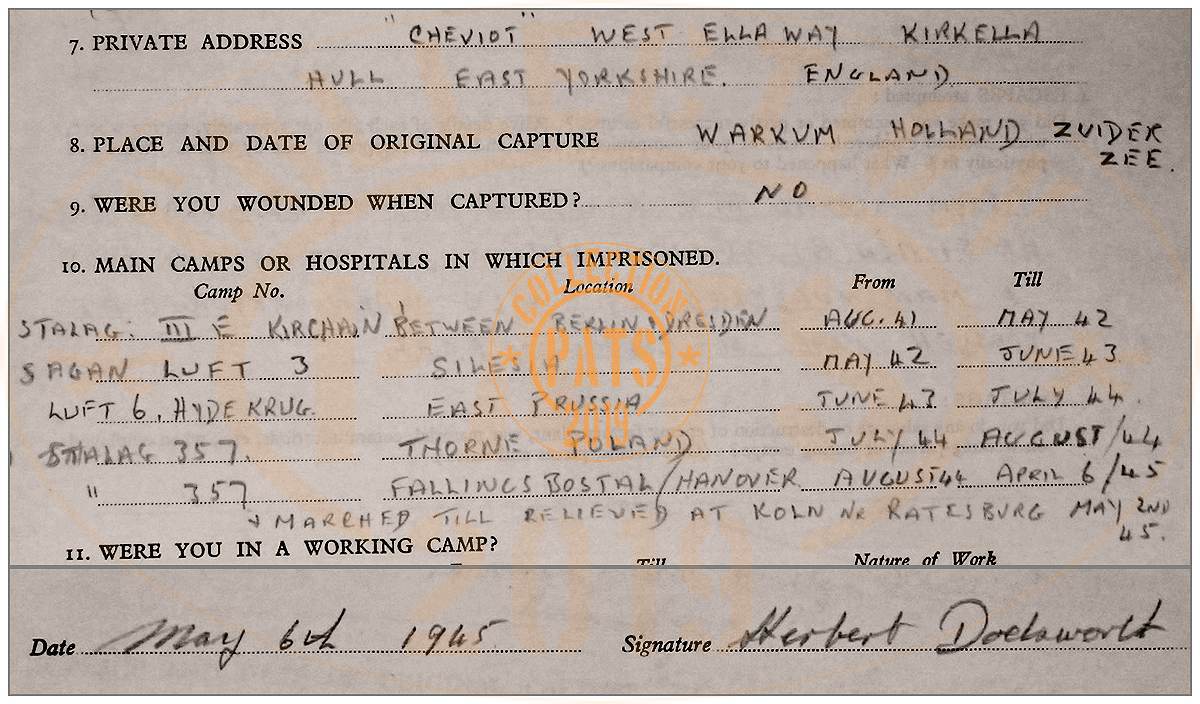 7. PRIVATE ADDRESS "CHEVIOT" WEST ELLA WAY KIRKELLA
HULL EAST YORKSHIRE. ENGLAND
8. PLACE AND DATE OF ORIGINAL CAPTURE WARKUM HOLLAND ZUIDER
ZEE.
9. WERE YOU WOUNDED WHEN CAPTURED? NO
10. MAIN CAMPS OR HOSPITALS IN WHICH IMPRISONED.
Camp No. Location From Till
STALAG: III E KIRCHAIN BETWEEN BERLIN & DRESDEN AUG. 41 MAY 42
SAGAN LUFT 3 SILESIA MAY 42 JUNE 43
LUFT 6, HYDEKRUG. EAST PRUSSIA JUNE 43 JULY 44.
STALAG 357. THORNE POLAND JULY/44 AUGUST/44
" 357 FALLINGSBOSTAL/HANOVER AUGUST 44 APRIL 6/45
& MARCHED TILL RELIEVED AT KOLN Nr RATESBURG MAY 2ND
45.
11. WERE YOU IN A WORKING CAMP?
Till Nature of Work
Date May 6th 1945. Signature Herbert Dodsworth
COLLECTION
PATS
2019